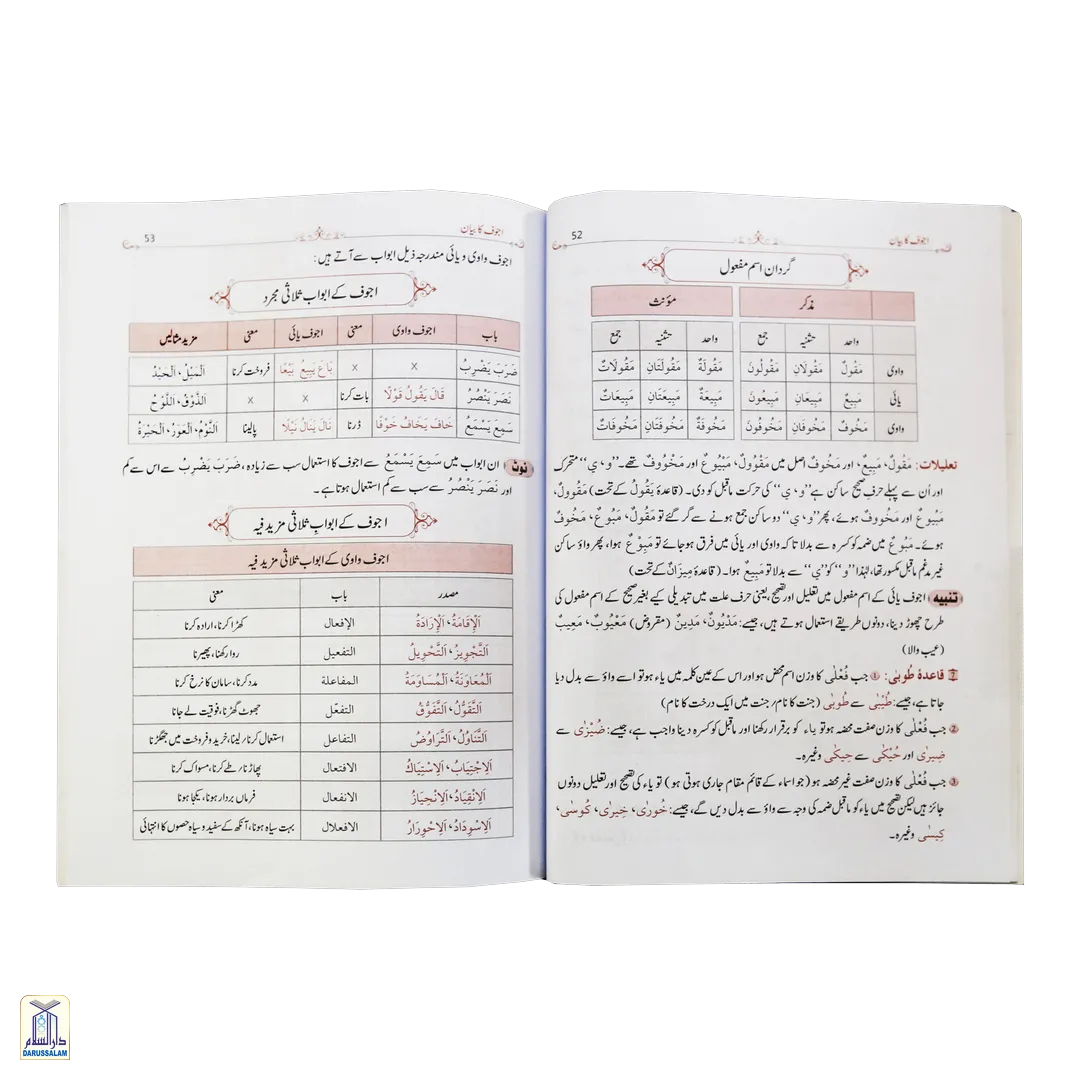 اجوف کا بیان 52
گردان اسم مفعول
مذکر مؤنث
واحد تثنیہ جمع واحد تثنیہ جمع
واوی مَقُولٌ مَقُولَانِ مَقُولُونَ مَقُولَةٌ مَقُولَتَانِ مَقُولَاتٌ
یائی مَبِيعٌ مَبِيعَانِ مَبِيعُونَ مَبِيعَةٌ مَبِيعَتَانِ مَبِيعَاتٌ
واوی مَخُوفٌ مَخُوفَانِ مَخُوفُونَ مَخُوفَةٌ مَخُوفَتَانِ مَخُوفَاتٌ
تعلیلات: مَقُولٌ، مَبِيعٌ، اور مَخُوفٌ اصل میں مَقْوُولٌ، مَبْيُوعٌ اور مَخْوُوفٌ تھے۔ ’’و، ي‘‘ متحرک
اور اُن سے پہلے حرفِ صحیح ساکن ہے ’’و، ي‘‘ کی حرکت ماقبل کو دی۔ (قاعدۂ يَقُولُ کے تحت) مَقُوولٌ،
مَبُيوعٌ اور مَخُووفٌ ہوئے، پھر ’’و، ي‘‘ دو ساکن جمع ہونے سے گر گئے تو مَقُولٌ، مَبُوعٌ، مَخُوفٌ
ہوئے۔ مَبُوعٌ میں ضمہ کو کسرہ سے بدلا تاکہ واوی اور یائی میں فرق ہو جائے تو مَبِوْعٌ ہوا، پھر واؤ ساکن
غیر مدغم ماقبل مکسور تھا، لہٰذا ’’و‘‘ کو ’’ي‘‘ سے بدلا تو مَبِيعٌ ہوا۔ (قاعدۂ مِيزَانٌ کے تحت)
تنبیہ اجوف یائی کے اسم مفعول میں تعلیل اور تصحیح، یعنی حرف علت میں تبدیلی کیے بغیر صحیح کے اسم مفعول کی
طرح چھوڑ دینا، دونوں طریقے استعمال ہوتے ہیں، جیسے: مَدْيُونٌ، مَدِينٌ (مقروض) مَعْيُوبٌ، مَعِيبٌ
(عیب والا)
قاعدۂ طُوبٰی: ① جب فُعْلٰی کا وزن اسم محض ہو اور اس کے عین کلمہ میں یاء ہو تو اسے واؤ سے بدل دیا
جاتا ہے، جیسے: طُيْبٰی سے طُوبٰی (جنت کا نام / جنت میں ایک درخت کا نام)
② جب فُعْلٰی کا وزن صفت محضہ ہو تو یاء کو برقرار رکھنا اور ماقبل کو کسرہ دینا واجب ہے، جیسے: ضُيْزٰی سے
ضِيزٰی اور حُيْكٰی سے حِيكٰی وغیرہ۔
③ جب فُعْلٰی کا وزن صفت غیر محضہ ہو (جو اسماء کے قائم مقام جاری ہوتی ہو) تو یاء کی تصحیح اور تعلیل دونوں
جائز ہیں لیکن تصحیح میں یاء کو ماقبل ضمہ کی وجہ سے واؤ سے بدل دیں گے، جیسے: خُورٰی، خِيرٰی، كُوسٰی،
كِيسٰی وغیرہ۔
اجوف کا بیان 53
اجوف واوی و یائی مندرجہ ذیل ابواب سے آتے ہیں:
اجوف کے ابواب ثلاثی مجرد
باب اجوف واوی معنی اجوف یائی معنی مزید مثالیں
ضَرَبَ يَضْرِبُ x x بَاعَ يَبِيعُ بَيْعًا فروخت کرنا اَلْمَيْلُ، اَلْحَيْدُ
نَصَرَ يَنْصُرُ قَالَ يَقُولُ قَوْلًا بات کرنا x x اَلذَّوْقُ، اَللَّوْحُ
سَمِعَ يَسْمَعُ خَافَ يَخَافُ خَوْفًا ڈرنا نَالَ يَنَالُ نَيْلًا پالینا اَلنَّوْمُ، اَلْعَوَرُ، اَلْحَيْرَةُ
نوٹ ان ابواب میں سَمِعَ يَسْمَعُ سے اجوف کا استعمال سب سے زیادہ، ضَرَبَ يَضْرِبُ سے اس سے کم
اور نَصَرَ يَنْصُرُ سے سب سے کم استعمال ہوتا ہے۔
اجوف کے ابوابِ ثلاثی مزید فیہ
اجوف واوی کے ابواب ثلاثی مزید فیہ
مصدر باب معنی
اَلْإِقَامَةُ، اَلْإِرَادَةُ الإفعال کھڑا کرنا، ارادہ کرنا
اَلتَّجْوِيزُ، اَلتَّحْوِيلُ التفعيل روا رکھنا، پھیرنا
اَلْمُعَاوَنَةُ، اَلْمُسَاوَمَةُ المفاعلة مدد کرنا، سامان کا نرخ کرنا
اَلتَّقَوُّلُ، اَلتَّفَوُّقُ التفعّل جھوٹ گھڑنا، فوقیت لے جانا
اَلتَّنَاوُلُ، اَلتَّرَاوُضُ التفاعل استعمال کرنا / لینا، خرید و فروخت میں جھگڑنا
اَلِاجْتِيَابُ، اَلِاسْتِيَاكُ الافتعال پھاڑنا / طے کرنا، مسواک کرنا
اَلِانْقِيَادُ، اَلِانْحِيَازُ الانفعال فرماں بردار ہونا، یکجا ہونا
اَلِاسْوِدَادُ، اَلِاحْوِرَارُ الافعلال بہت سیاہ ہونا، آنکھ کے سفید و سیاہ حصوں کا انتہائی
دارالسلام
DARUSSALAM